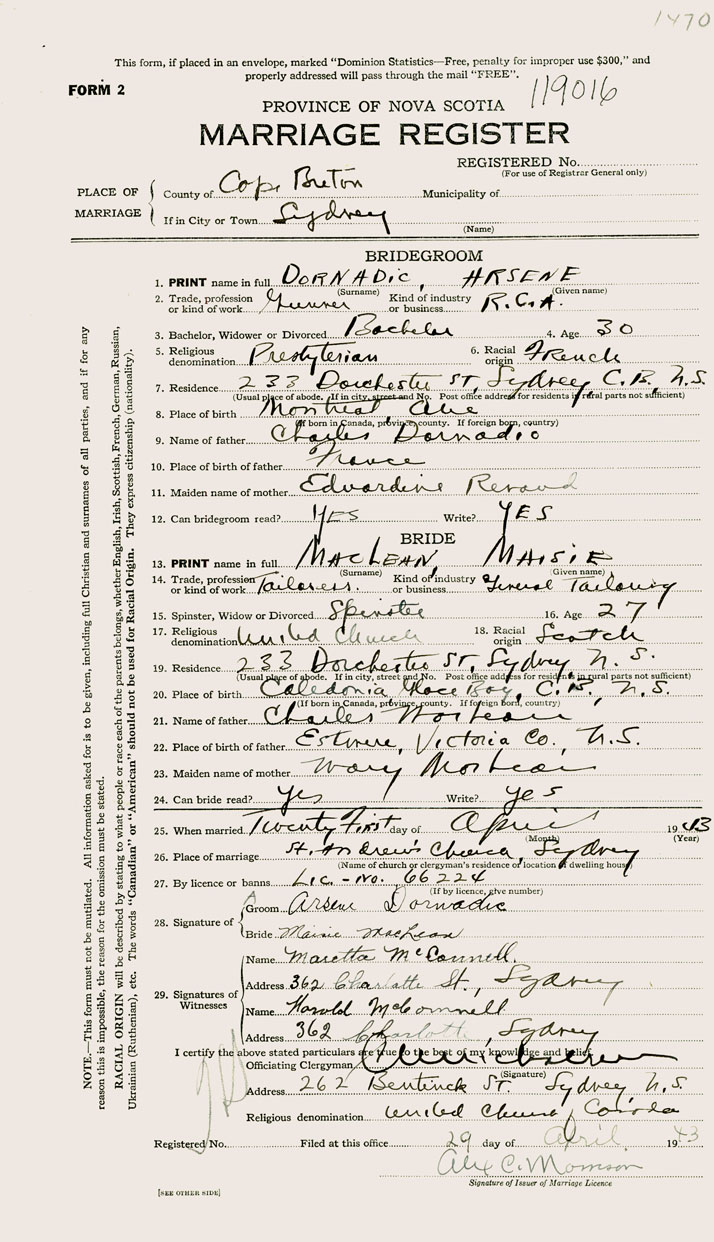 1470
This form, if placed in an envelope, marked "Dominion Statistics—Free, penalty for improper use $300," and
properly addressed will pass through the mail "FREE".
FORM 2
119016
PROVINCE OF NOVA SCOTIA
MARRIAGE REGISTER
REGISTERED No.
(For use of Registrar General only)
PLACE OF MARRIAGE
County of Cape Breton Municipality of
If in City or Town Sydney
(Name)
BRIDEGROOM
1. PRINT name in full DORNADIC, ARSENE
(Surname) (Given name)
2. Trade, profession or kind of work Gunner Kind of industry or business R.C.A.
3. Bachelor, Widower or Divorced Bachelor 4. Age 30
5. Religious denomination Presbyterian 6. Racial origin French
7. Residence 233 Dorchester St, Sydney C.B., N.S.
(Usual place of abode. If in city, street and No. Post office address for residents in rural parts not sufficient)
8. Place of birth Montreal, Que
(If born in Canada, province, county. If foreign born, country)
9. Name of father Charles Dornadic
10. Place of birth of father France
11. Maiden name of mother Edvardine
12. Can bridegroom read? YES Write? YES
BRIDE
13. PRINT name in full MACLEAN, MAISIE
(Surname) (Given name)
14. Trade, profession or kind of work Tailoress Kind of industry or business General Tailoring
15. Spinster, Widow or Divorced Spinster 16. Age 27
17. Religious denomination United Church 18. Racial origin Scotch
19. Residence 233 Dorchester St, Sydney N.S.
(Usual place of abode. If in city, street and No. Post office address for residents in rural parts not sufficient)
20. Place of birth Caledonia, Glace Bay, C.B., N.S.
(If born in Canada, province, county. If foreign born, country)
21. Name of father Charles MacLean
22. Place of birth of father Estmere, Victoria Co., N.S.
23. Maiden name of mother Mary MacLean
24. Can bride read? Yes Write? Yes
25. When married Twenty First day of April 1943
(Month) (Year)
26. Place of marriage St. Andrew's Church, Sydney
(Name of church or clergyman's residence or location of dwelling house)
27. By licence or banns Lic. - No. 66224
(If by licence, give number)
28. Signature of
Groom Arsene Dornadic
Bride Maisie MacLean
29. Signatures of Witnesses
Name Maretta McConnell
Address 362 Charlotte St., Sydney
Name Harold McConnell
Address 362 Charlotte, Sydney
I certify the above stated particulars are true to the best of my knowledge and belief.
Officiating Clergyman
(Signature)
Address 262 Bentinck St. Sydney N.S.
Religious denomination United Church of Canada
Registered No. Filed at this office 29 day of April 1943
Alex C. Morrison
Signature of Issuer of Marriage Licence
[SEE OTHER SIDE]
NOTE.—This form must not be mutilated. All information asked for is to be given, including full Christian and surnames of all parties, and if for any
reason this is impossible, the reason for the omission must be stated.
RACIAL ORIGIN will be described by stating to what people or race each of the parents belongs, whether English, Irish, Scottish, French, German, Russian,
Ukrainian (Ruthenian), etc. The words "Canadian" or "American" should not be used for Racial Origin. They express citizenship (nationality).